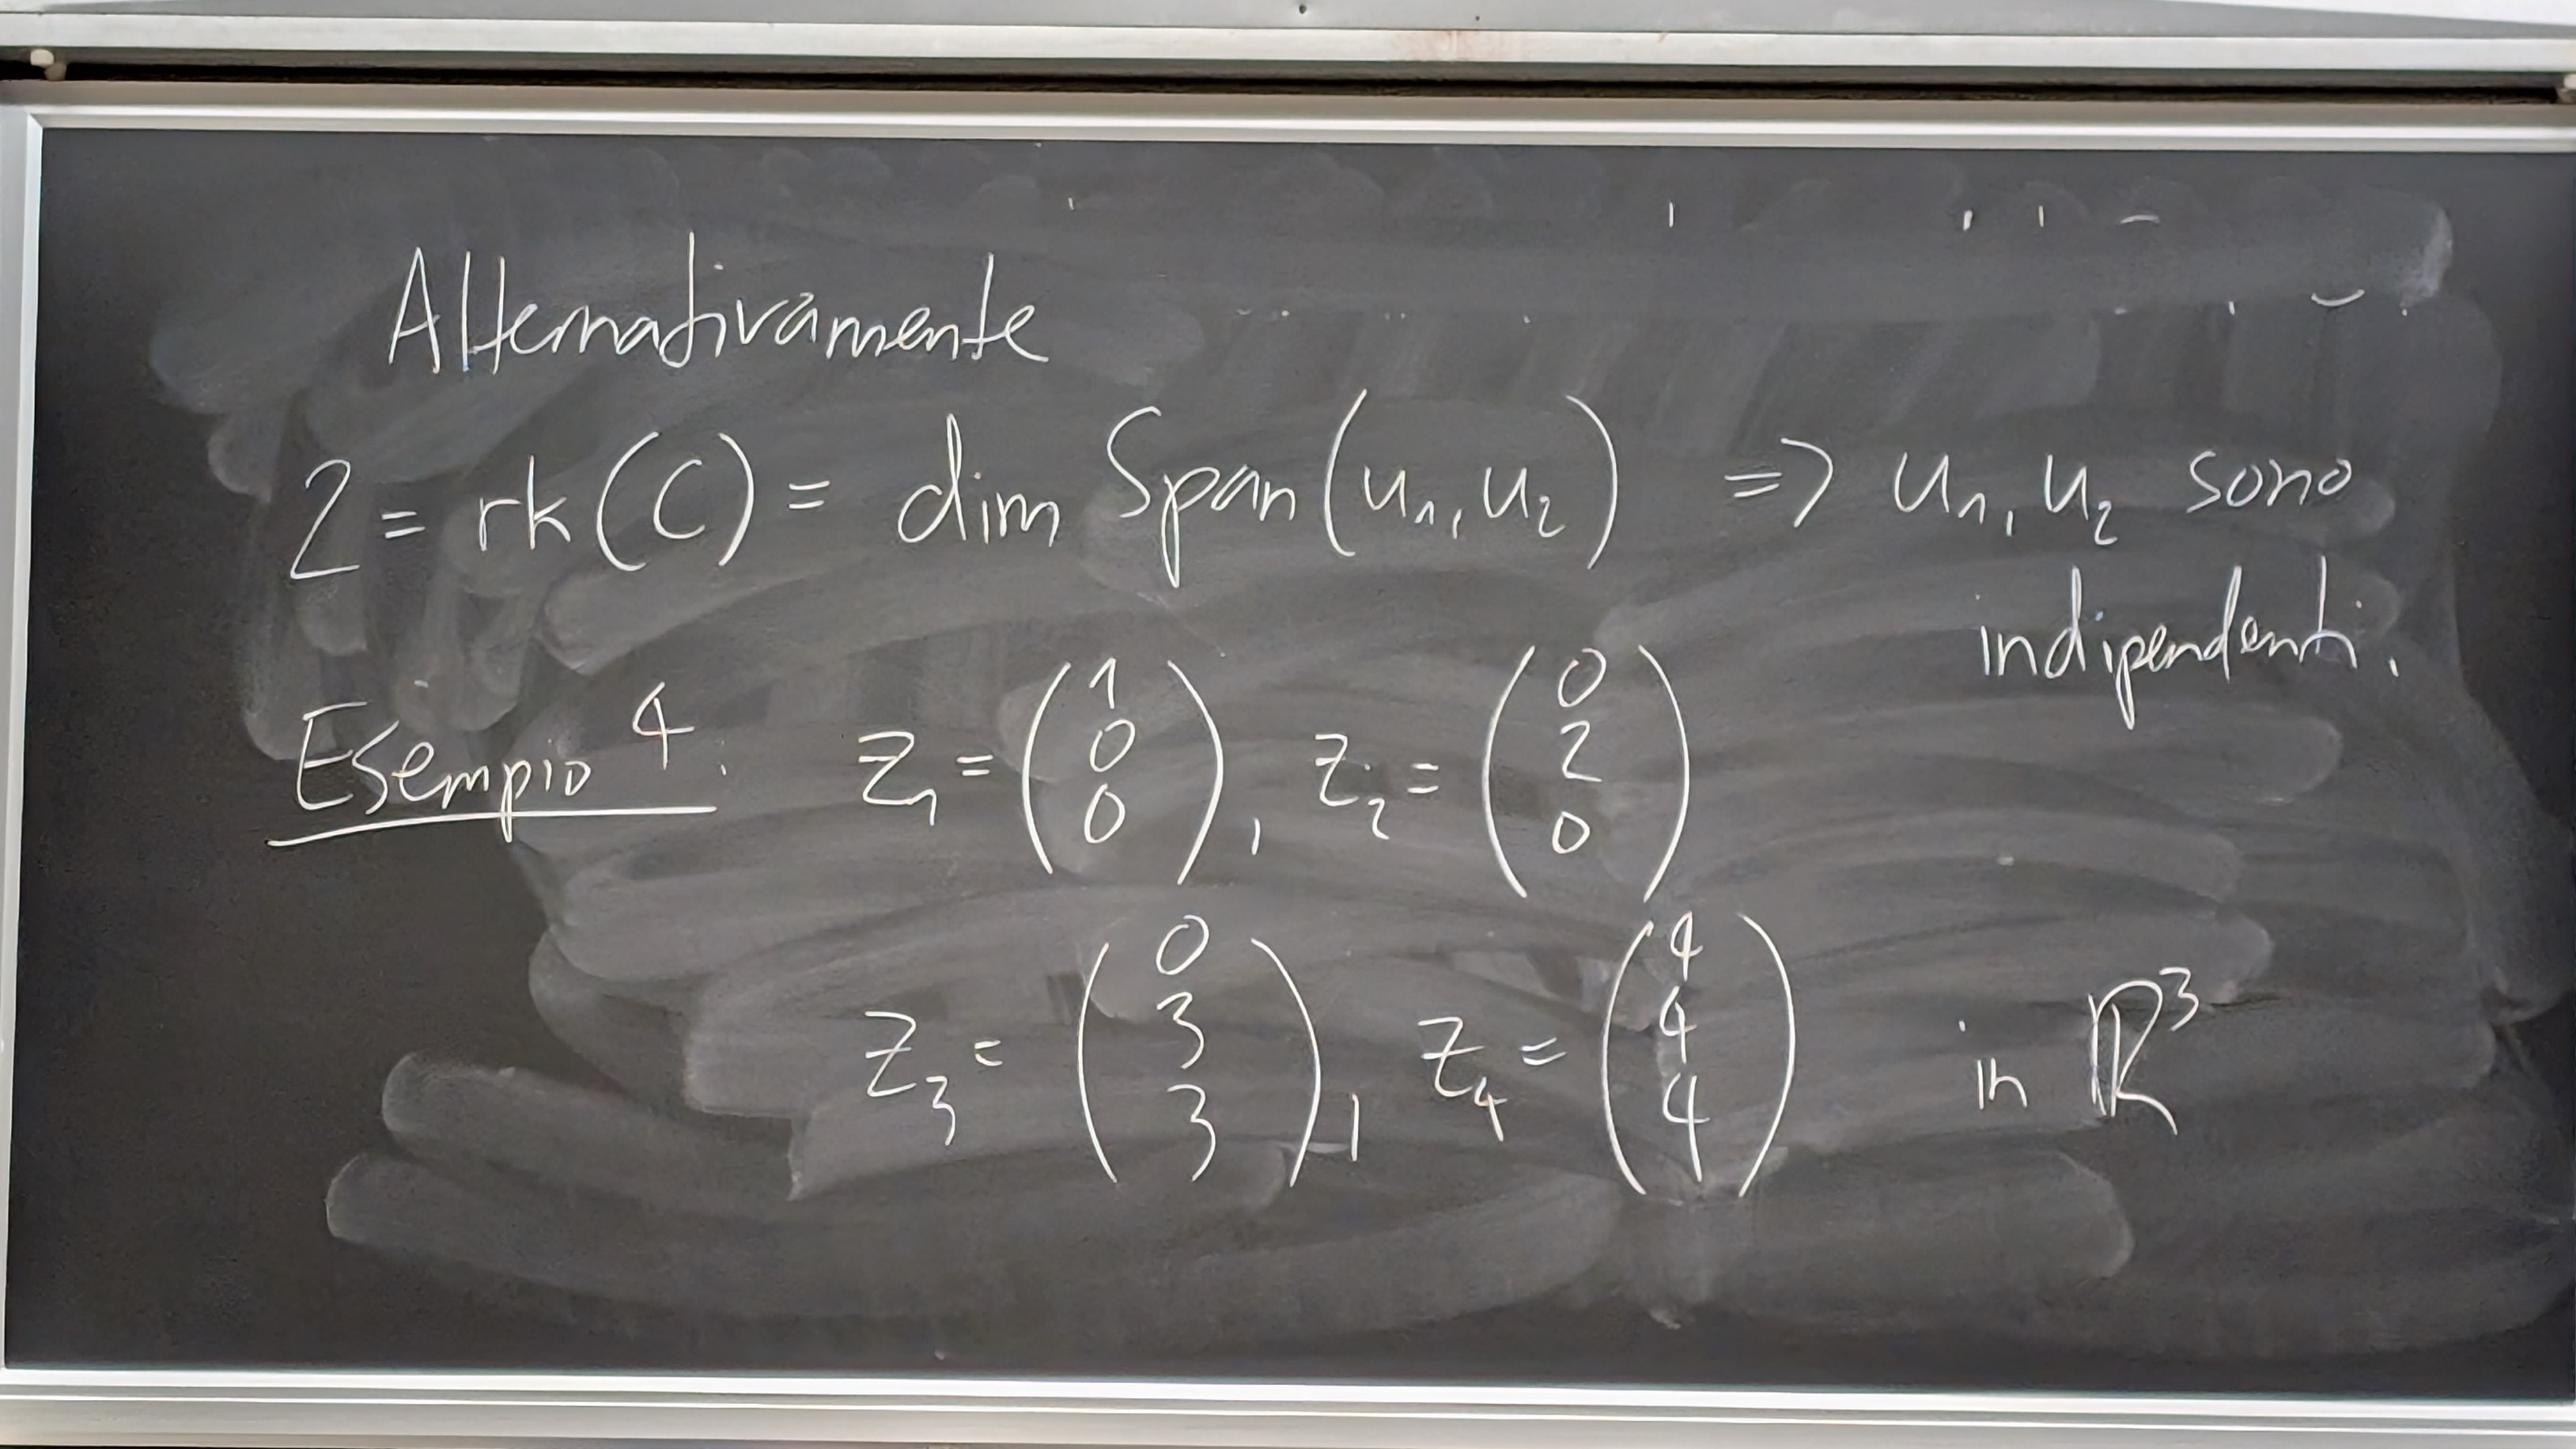 Alternativamente
2 = rk(C) = dim Span(u₁, u₂) => u₁, u₂ sono
indipendenti.
Esempio 4. z₁ = (1 0 0), z₂ = (0 2 0)
z₃ = (0 3 3), z₄ = (4 4 4) in ℝ³